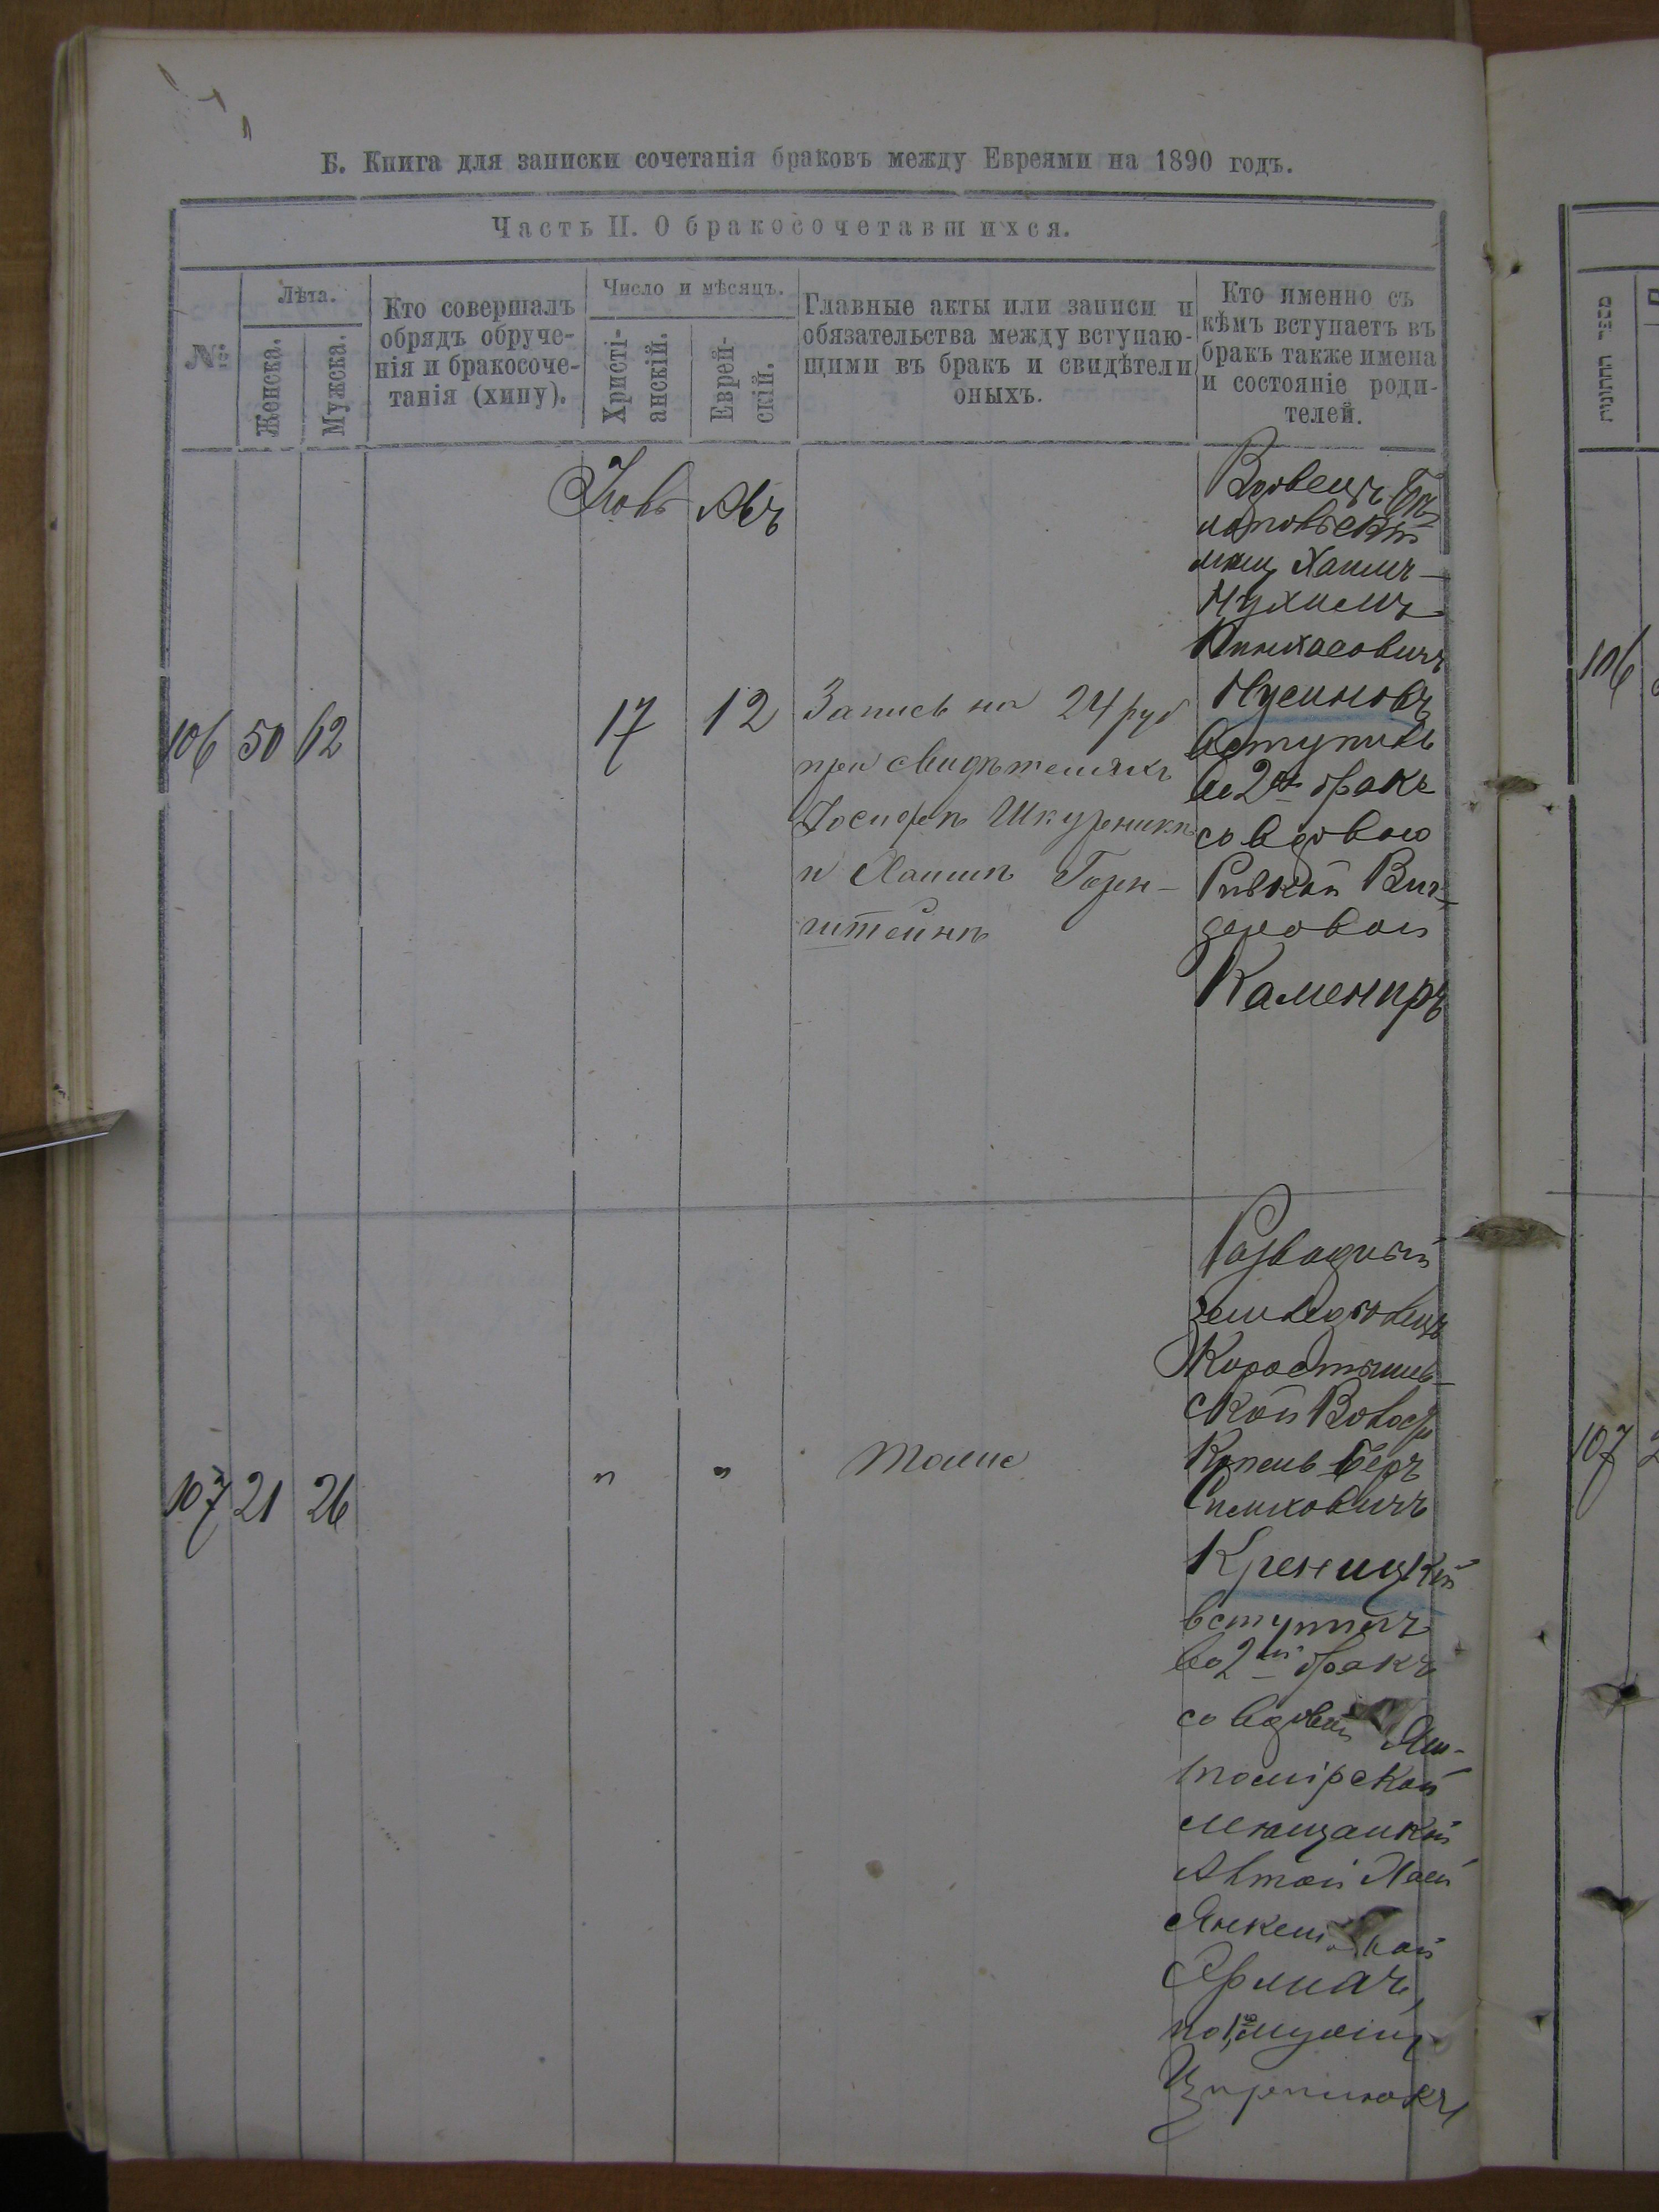 Б. Книга для записки сочетанія браковъ между Евреями на 1890 годъ.
Часть II. О бракосочетавшихся.
№
Лѣта.
Женска.
Мужска.
Кто совершалъ
обрядъ обруче-
нія и бракосоче-
танія (хипу).
Число и мѣсяцъ.
Христі-
анскій.
Еврей-
скій.
Главные акты или записи и
обязательства между вступаю-
щими въ бракъ и свидѣтели
оныхъ.
Кто именно съ
кѣмъ вступаетъ въ
бракъ также имена
и состояніе роди-
телей.
מספר החתונות
Авъ
106 50 62
17 12
Запись на 24 руб
при свидѣтеляхъ
Іосифѣ Шкурникѣ
и Хаимѣ Горн-
штейнѣ
Вдовецъ
мѣщ Хаимъ-
Нухимъ
Пинхасовичъ
Нусиновъ
вступилъ
во 2й бракъ
со вдовою
Ривкой Виг-
доровой
Камениръ
106
107 21 26
" "
тоже
Разводный
земледѣлецъ
Коростышев-
ской Волост
Копель Беръ
Срулиовичъ
Креницкій
вступилъ
во 2й бракъ
со вдовой Жи-
томірской
мѣщанкой
Хаей
по 1му мужу
107